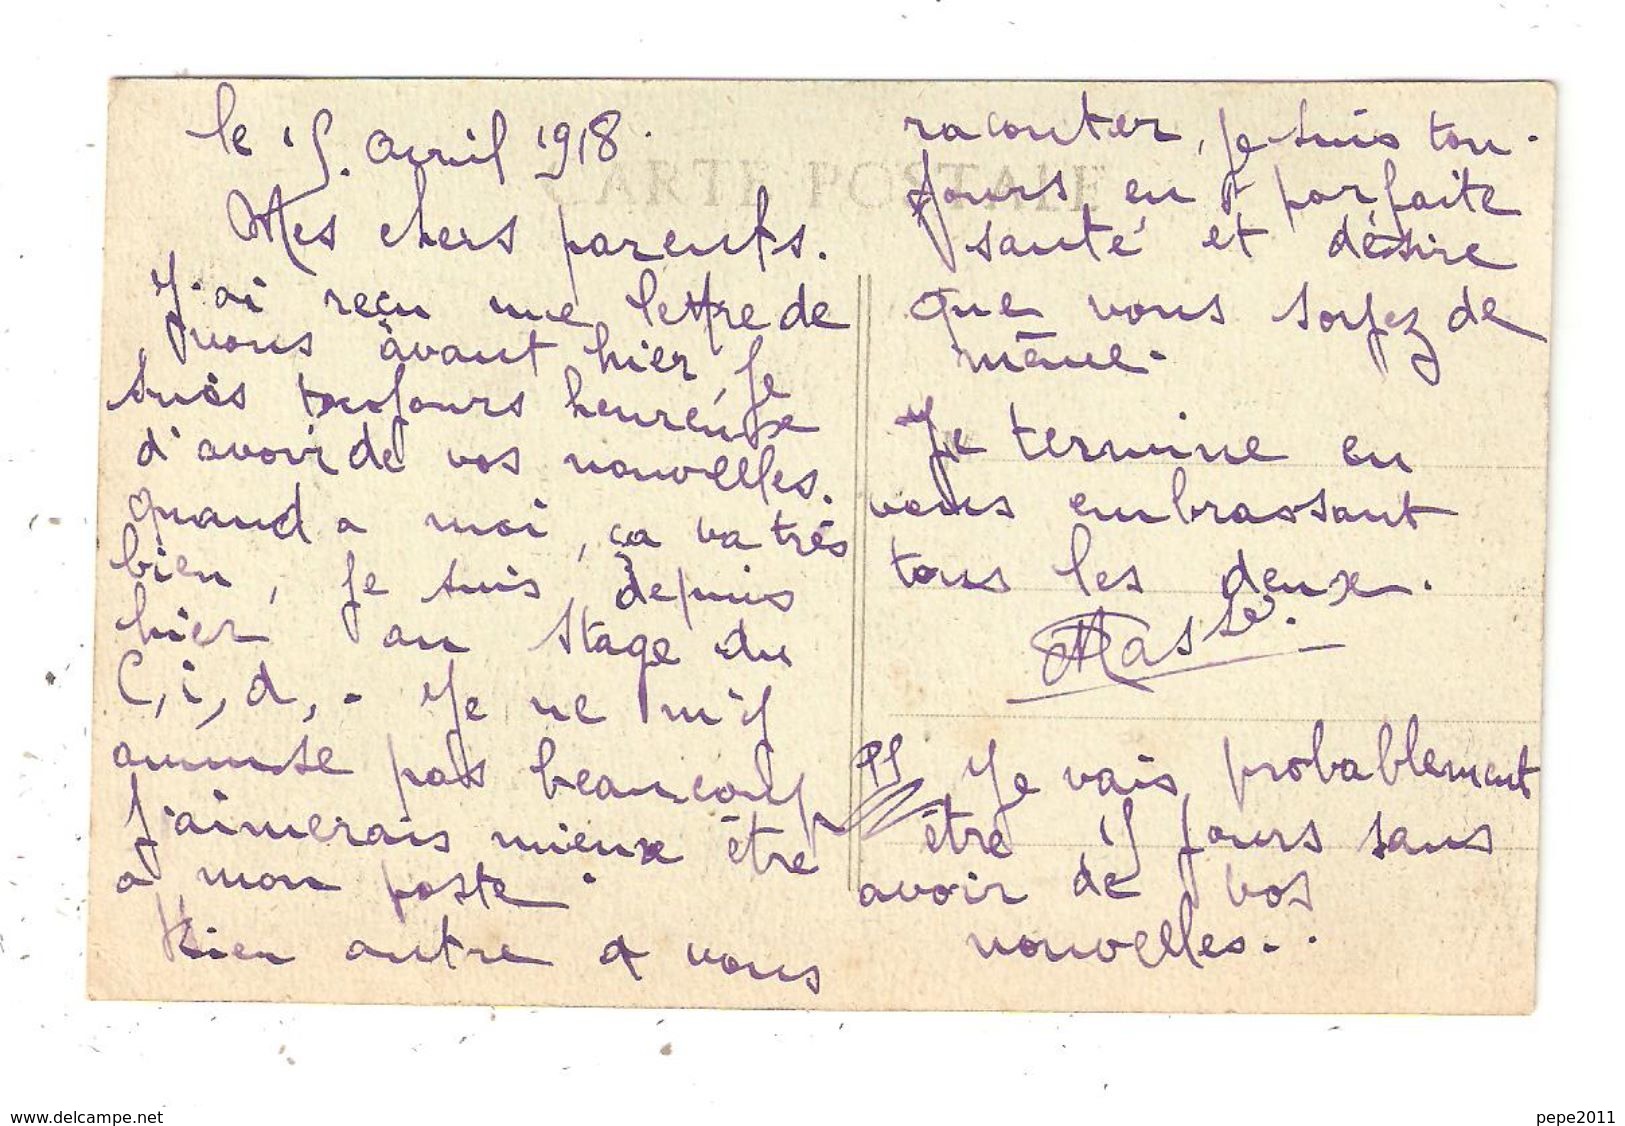 le 15. avril 1918.
CARTE POSTALE
Mes chers parents.
J'ai reçu une lettre de
vous avant hier, Je
suis toujours heureuse
d'avoir de vos nouvelles.
quand a moi, ça va très
bien, je suis depuis
hier au stage du
C, i, d, - Je ne m'y
amuse pas beaucoup
J'aimerais mieux être
a mon poste.
Rien autre a vous
raconter, je suis tou-
jours en parfaite
santé et désire
que vous soyez de
même.
Je termine en
vous embrassant
tous les deux.
Massé.
PS Je vais probablement
être 15 jours sans
avoir de vos
nouvelles..
www.delcampe.net
pepe2011